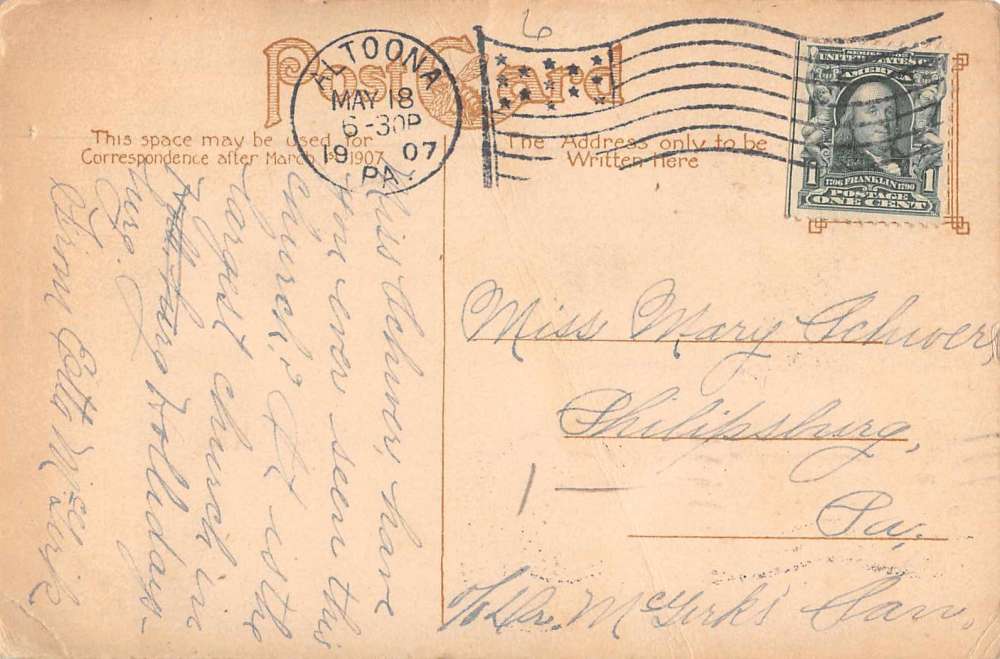 Post Card
ALTOONA
MAY 18
6-30P
19 07
PA.
6
This space may be used for
Correspondence after March 1st 1907
The Address only to be
Written Here
SERIES 1902
UNITED STATES OF
AMERICA
1 1796 FRANKLIN 1790 1
POSTAGE
ONE CENT
Miss Schwer, have
you ever seen this
church? It is the
largest church in
Hollidays-
burg.
From Etta McGirk
Miss Mary Schwer,
Philipsburg,
Pa,
c/o Dr. McGirk's San.